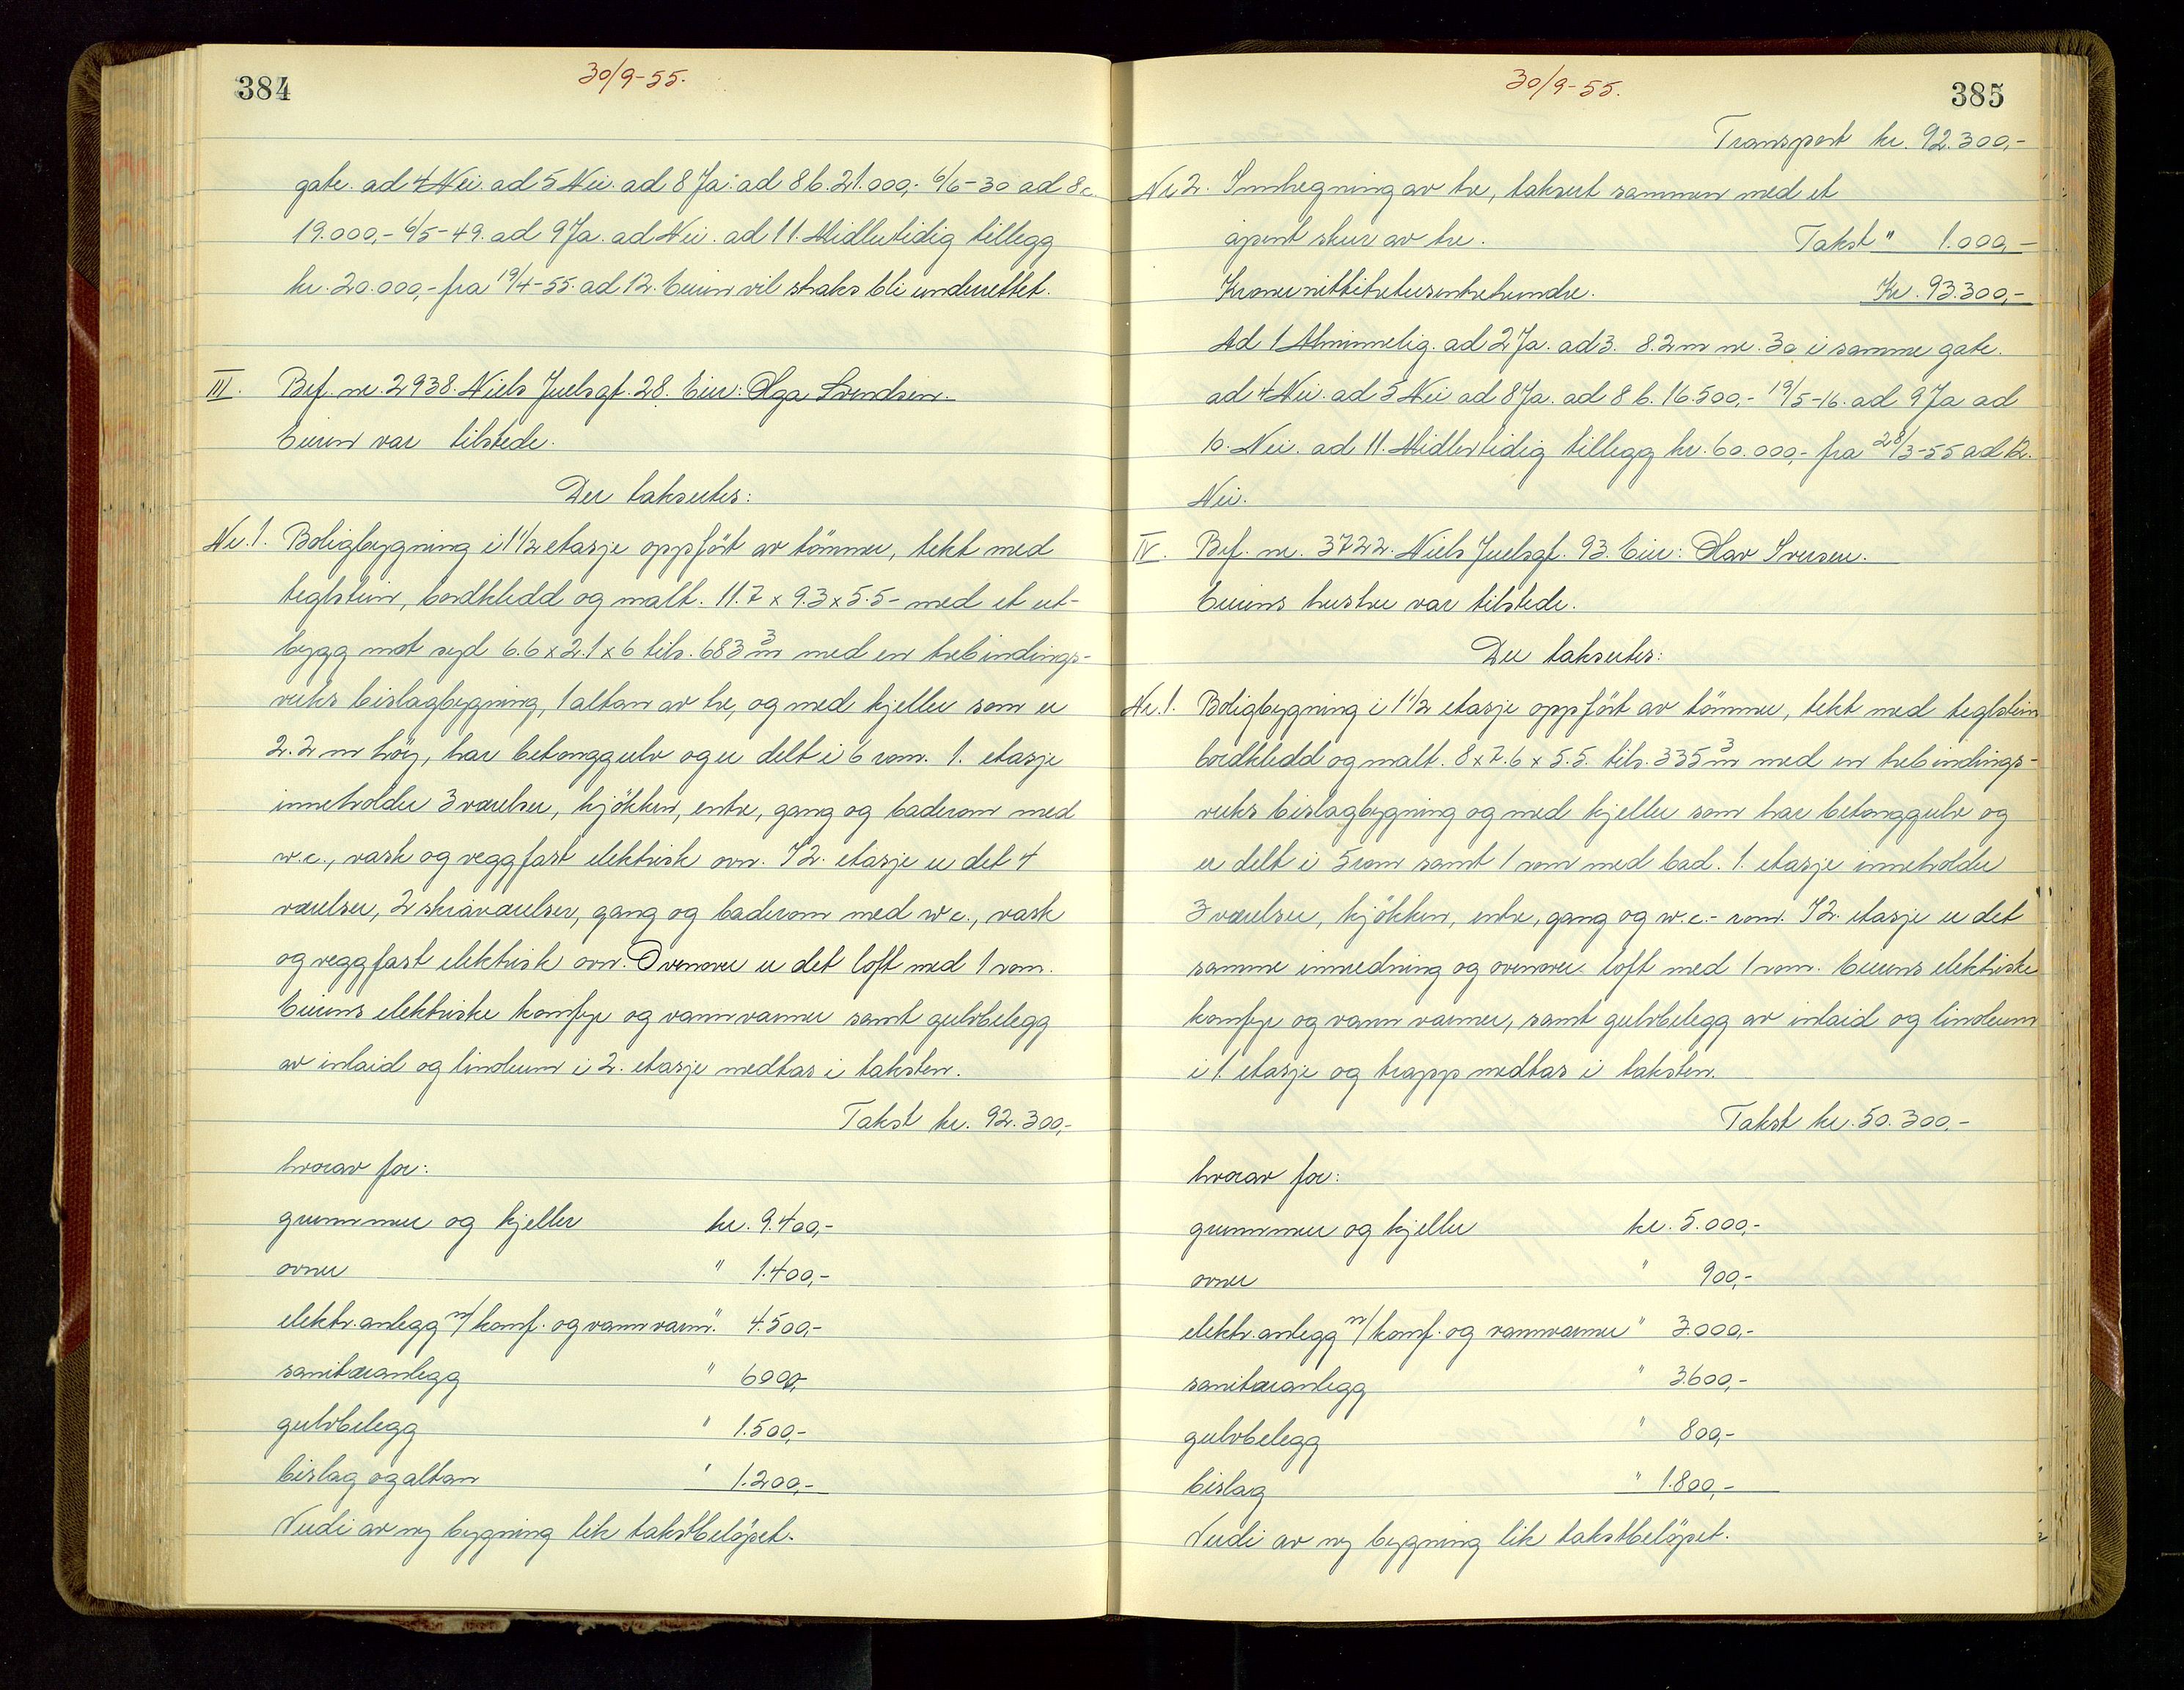 384
30/9-55.
gate. ad 4 Nei. ad 5 Nei. ad 8 Ja. ad 8 b. 21.000,- 6/6-30 ad 8c.
19.000,- 6/5-49. ad 9 Ja. ad Nei. ad 11. Midlertidig tillegg
kr. 20.000,- fra 19/4-55. ad 12. Eieren vil straks bli underrettet.
III. Bef. nr. 2938. Niels Juelsgt. 28. Eier: Olga Svendsen.
Eieren var tilstede.
Der takseres:
Nr. 1. Boligbygning i 1 1/2 etasje oppført av tømmer, tekt med
teglstein, bordkledd og malt. 11.7 x 9.3 x 5.5- med et ut-
bygg mot syd 6.6 x 2.1 x 6 tils. 683 m3 med en trebindings-
verks bislagbygning, 1 altan av tre, og med kjeller som er
2.2 m høy, har betonggulv og er delt i 6 rom. 1. etasje
inneholder 3 værelser, kjøkken, entre, gang og baderom med
w.c., vask og veggfast elektrisk ovn. I 2. etasje er det 4
værelser, 2 skråværelser, gang og baderom med w c., vask
og veggfast elektrisk ovn. Ovenover er det loft med 1 rom.
Eierens elektriske komfyr og vannvarmer samt gulvbelegg
av inlaid og linoleum i 2. etasje medtas i taksten.
Takst kr. 92.300,-
hvorav for:
grunnmur og kjeller kr. 9.400,-
ovner " 1.400,-
elektr. anlegg m/ komf. og vannvarm. " 4.500,-
sanitæranlegg " 6000,-
gulvbelegg " 1.500,-
bislag og altan " 1.200,-
Verdi av ny bygning lik takstbeløpet.
385
30/9-55.
Transport kr. 92.300,-
Nr 2. Innhegning av tre, taksert sammen med et
åpent skur av tre. Takst " 1.000,-
Kroner nittitretusentrehundre. Kr. 93.300,-
Ad 1 Alminnelig. ad 2 Ja. ad 3. 8.2 m nr. 30 i samme gate.
ad 4 Nei. ad 5 Nei ad 8 Ja. ad 8 b. 16.500,- 19/5-16. ad 9 Ja ad
10. Nei. ad 11. Midlertidig tillegg kr. 60.000,- fra 28/3-55 ad 12.
Nei.
IV. Bef. nr. 3722. Niels Juelsgt. 93. Eier: Olav Iversen.
Eierens hustru var tilstede.
Der takseres:
Nr. 1. Boligbygning i 1 1/2 etasje oppført av tømmer, tekt med teglstein
bordkledd og malt. 8 x 7.6 x 5.5. tils. 335 m3 med en trebindings-
verks bislagbygning og med kjeller som har betonggulv og
er delt i 5 rom samt 1 rom med bad. 1. etasje inneholder
3 værelser, kjøkken, entre, gang og w.c.- rom. I 2. etasje er det
samme innredning og ovenover loft med 1 rom. Eierens elektriske
komfyr og vann varmer, samt gulvbelegg av inlaid og linoleum
i 1. etasje og trapp medtas i taksten.
Takst kr. 50.300,-
hvorav for:
grunnmur og kjeller kr. 5.000,-
ovner " 900,-
elektr. anlegg m/ komf. og vannvarmer " 3.000,-
sanitæranlegg " 3.600,-
gulvbelegg " 800,-
bislag " 1.800,-
Verdi av ny bygning lik takstbeløpet.